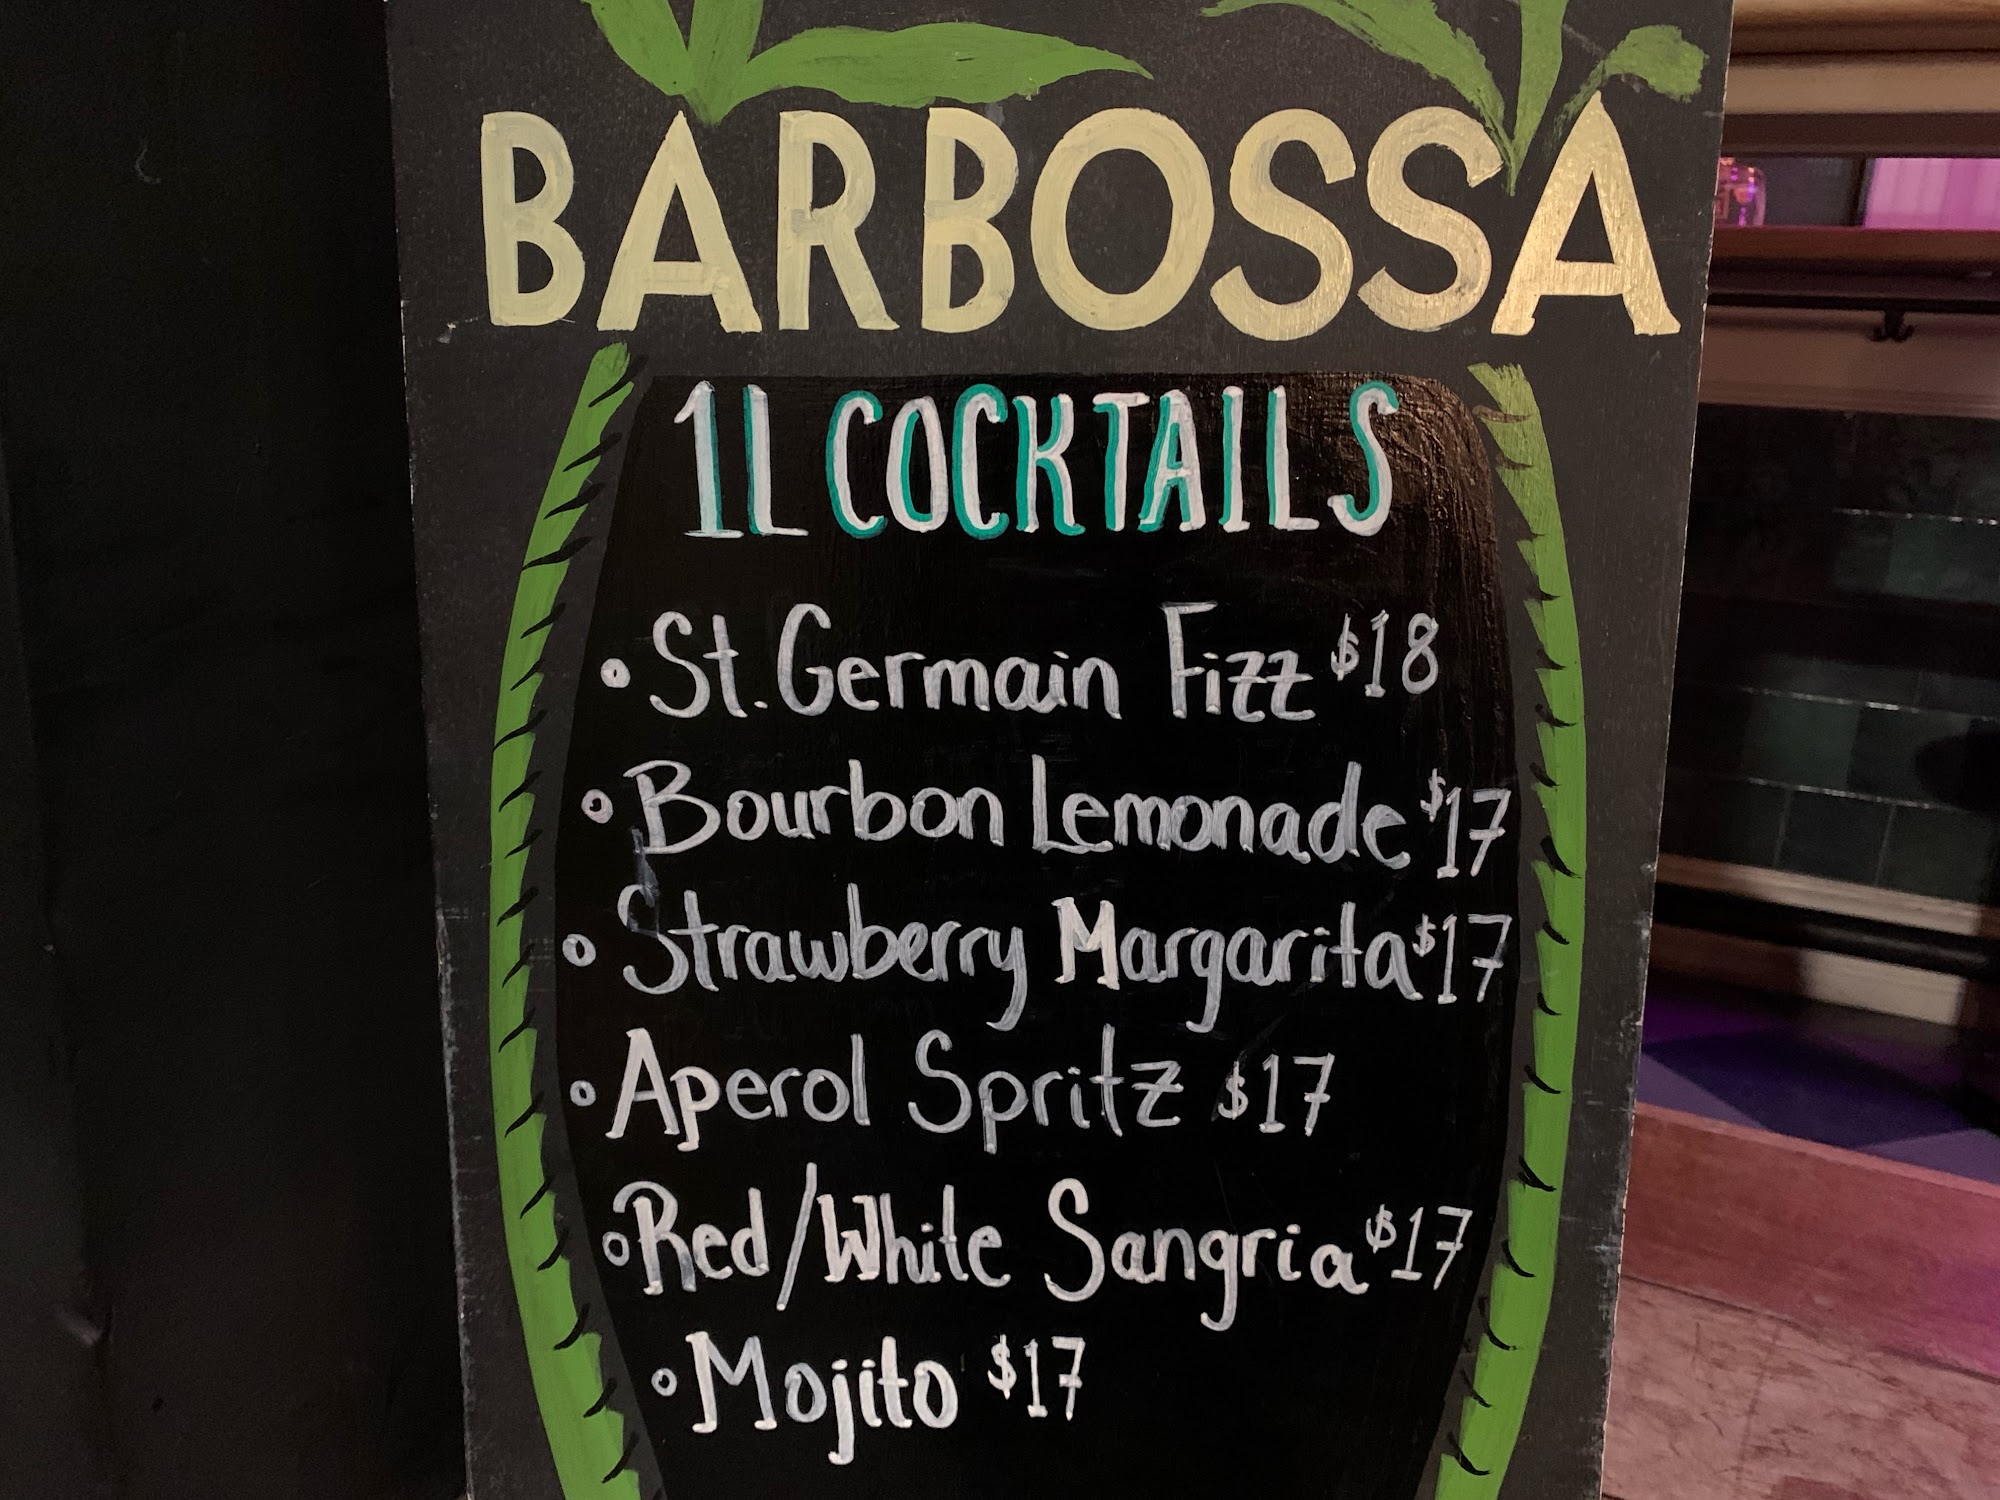 BARBOSSA
1L COCKTAILS
St. Germain Fizz $18
Bourbon Lemonade $17
Strawberry Margarita $17
Aperol Spritz $17
Red/White Sangria $17
Mojito $17